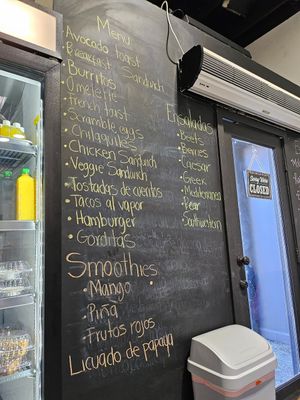 Menu
Avocado toast
Breakfast Sandwich
• Burritos
• Omelette
• french toast
• Scramble eggs
• Chilaquiles
• Chicken Sandwich
• Veggie Sandwich
• Tostadas de cuentos
• Tacos al vapor
• Hamburger
• Gorditas
Smoothies
• Mango
• Piña
• Frutos rojos
Licuado de papaya
Ensaladas
• Beets
• Berries
• Caesar
• Greek
• Mediterranea
• Pear
• Southwestern
Sorry We're
CLOSED